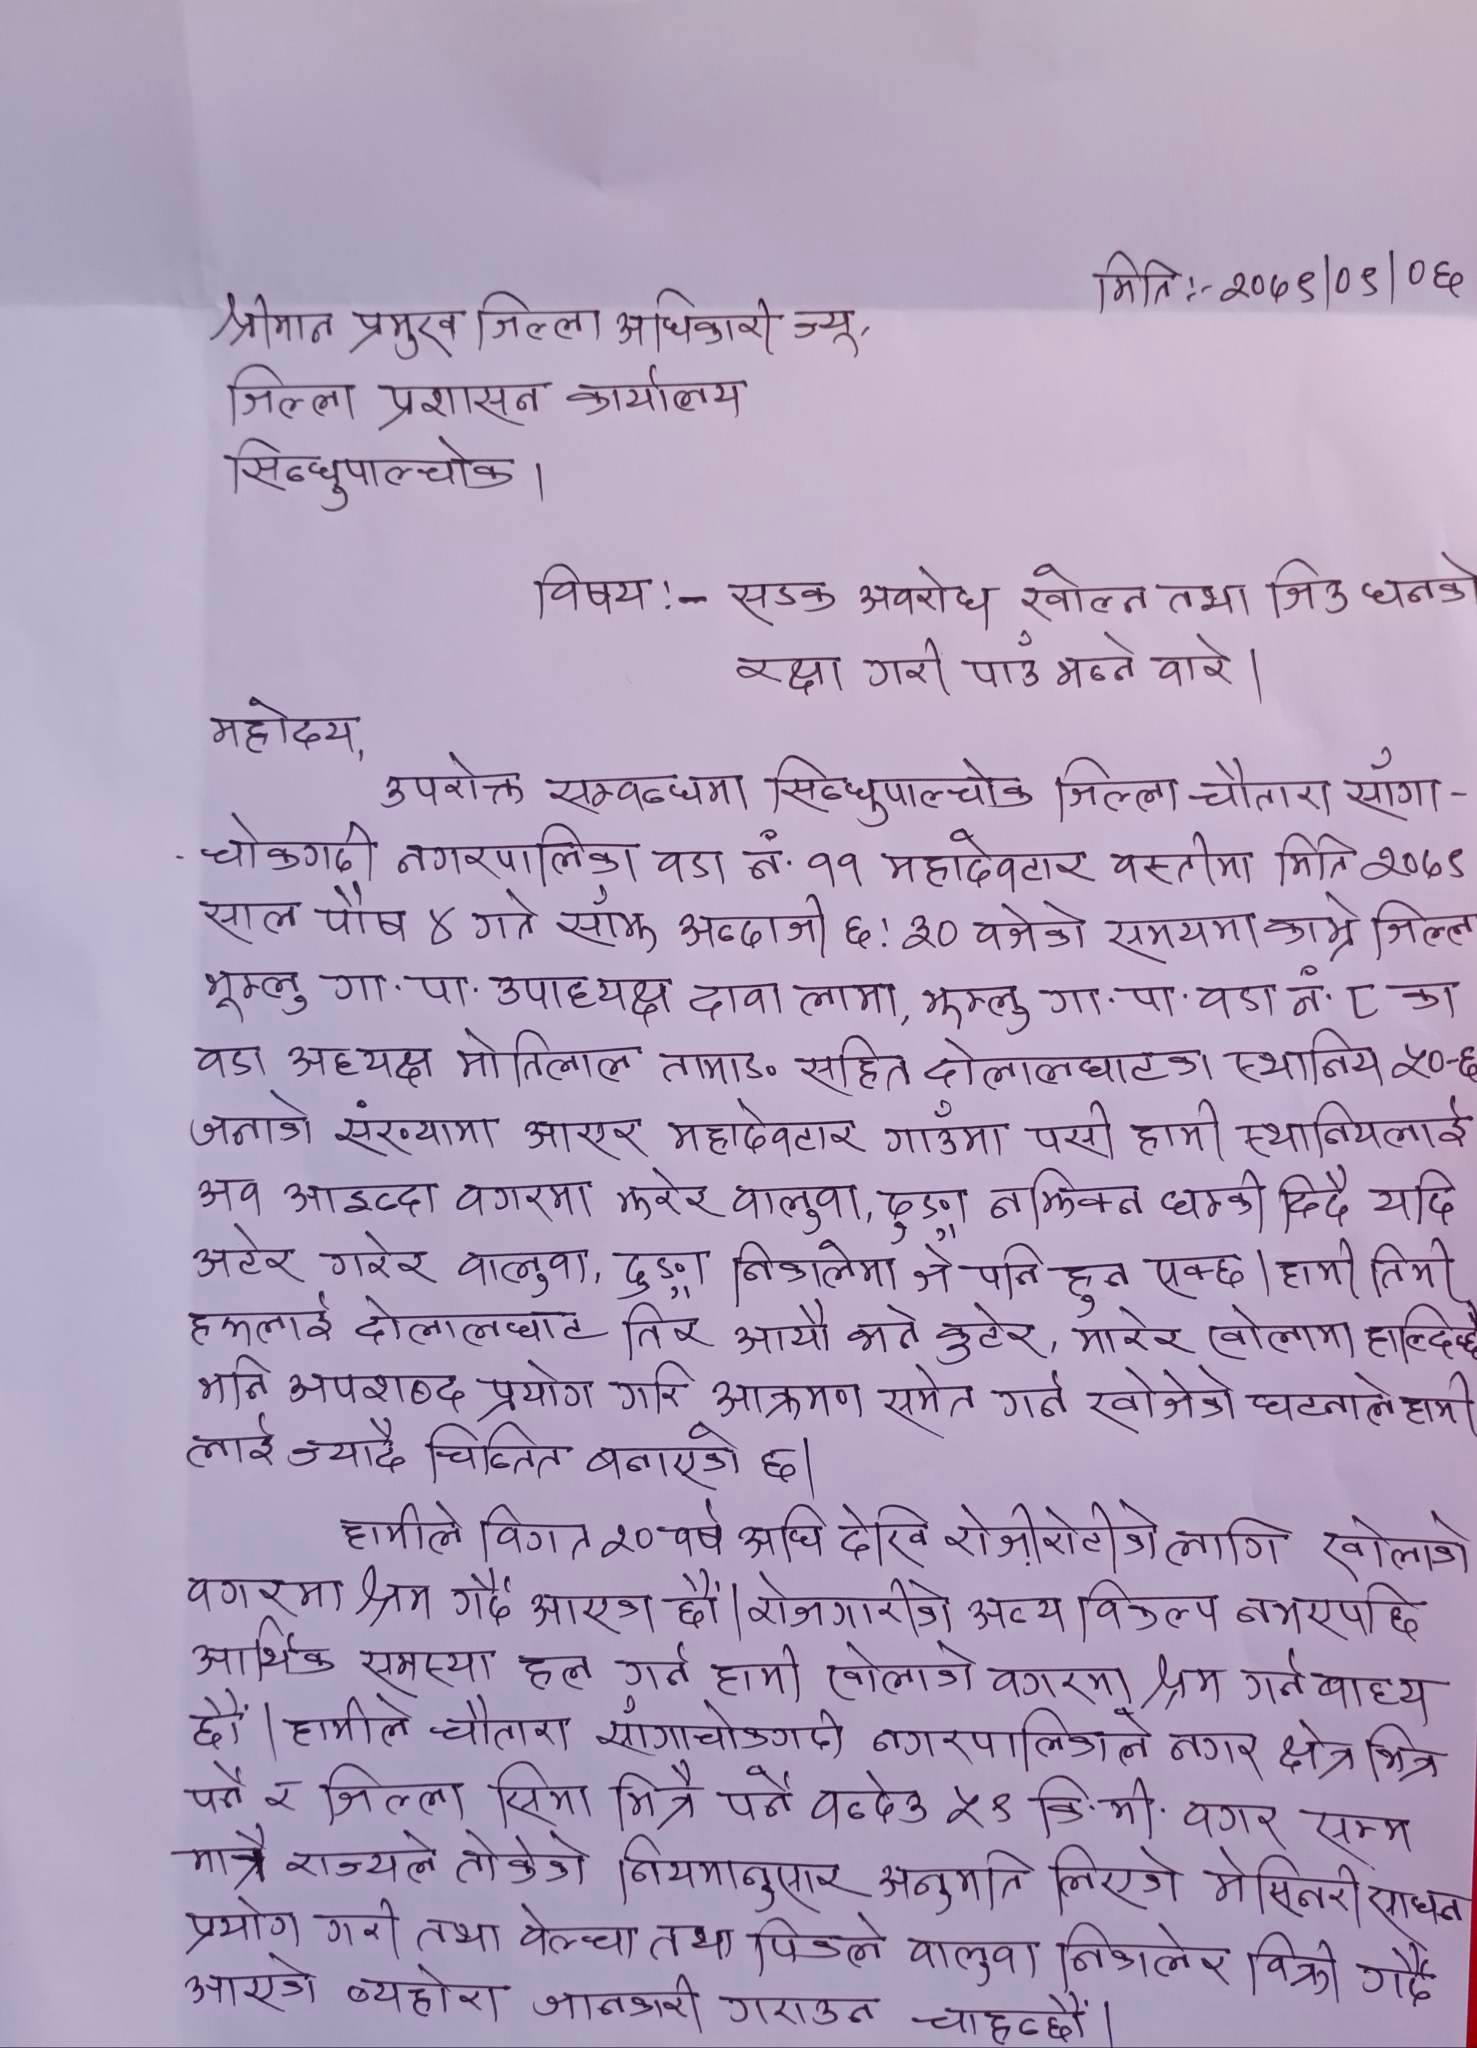 मिति:- २०७९/०९/०६
श्रीमान प्रमुख जिल्ला अधिकारी ज्यू,
जिल्ला प्रशासन कार्यालय
सिन्धुपाल्चोक ।
विषय:- सडक अवरोध खोल्न तथा जिउ धनको
रक्षा गरी पाउँ भन्ने वारे ।
महोदय,
उपरोक्त सम्वन्धमा सिन्धुपाल्चोक जिल्ला चौतारा साँगा-
चोकगढी नगरपालिका वडा नं. ११ महादेवटार वस्तीमा मिति २०७९
साल पौष ४ गते साँझ अन्दाजी ६:३० वजेको समयमा काभ्रे जिल्ल
भूम्लु गा.पा. उपाध्यक्ष दावा लामा, भूम्लु गा.पा. वडा नं. ८ का
वडा अध्यक्ष मोतिलाल तामाङ सहित दोलालघाटका स्थानिय ५०-६
जनाको संख्यामा आएर महादेवटार गाउँमा पसी हामी स्थानियलाई
अव आइन्दा वगरमा झरेर वालुवा, ढुङ्गा नझिक्न धम्की दिदै यदि
अटेर गरेर वालुवा, ढुङ्गा निकालेमा जे पनि हुन सक्छ । हामी तिमी
हरुलाई दोलालघाट तिर आयौ भने कुटेर, मारेर खोलामा हाल्दिन्छौ
भनि अपशब्द प्रयोग गरि आक्रमण समेत गर्न खोजेको घटनाले हामी
लाई ज्यादै चिन्तित बनाएको छ ।
हामीले विगत २० वर्ष अघि देखि रोजीरोटीको लागि खोलाको
वगरमा श्रम गर्दै आएका छौं । रोजगारीको अन्य विकल्प नभएपछि
आर्थिक समस्या हल गर्न हामी खोलाको वगरमा श्रम गर्न बाध्य
छौं । हामीले चौतारा साँगाचोकगढी नगरपालिकाले नगर क्षेत्र भित्र
पर्ने र जिल्ला सिमा भित्रै पर्ने वन्देउ ५९ कि.मी. वगर सम्म
मात्रै राज्यले तोकेको नियमानुसार अनुमति लिएको मेसिनरी साधन
प्रयोग गरी तथा वेल्चा तथा पिकले वालुवा निकालेर विक्री गर्दै
आएको व्यहोरा जानकारी गराउन चाहन्छौं ।